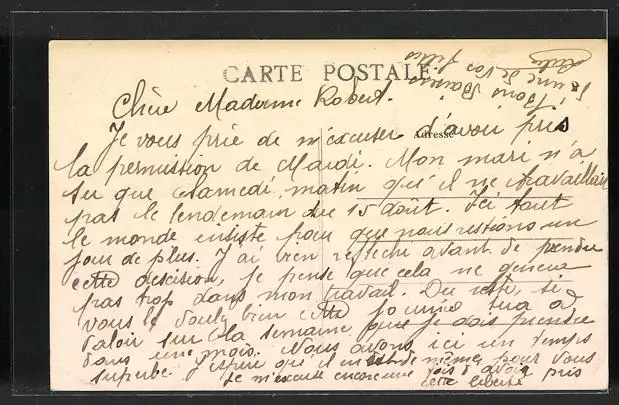 CARTE POSTALE
Adresse
Chère Madame Robert.
Je vous prie de m'excuser d'avoir pris
la permission de Mardi. Mon mari n'a
su que Samedi matin qu'il ne travaillait
pas le lendemain du 15 août. Ici tout
le monde insiste pour que nous restions un
jour de plus. J'ai bien réfléchi avant de prendre
cette décision, je pense que cela ne gênera
pas trop dans mon travail. Du reste, si
vous le voulez bien cette journée sera à
valoir sur la semaine que je dois prendre
dans un mois. Nous avons ici un temps
superbe. J'espère qu'il en est de même pour vous
Je m'excuse encore une fois d'avoir pris
cette liberté
Bons Baisers
d'une de vos filles